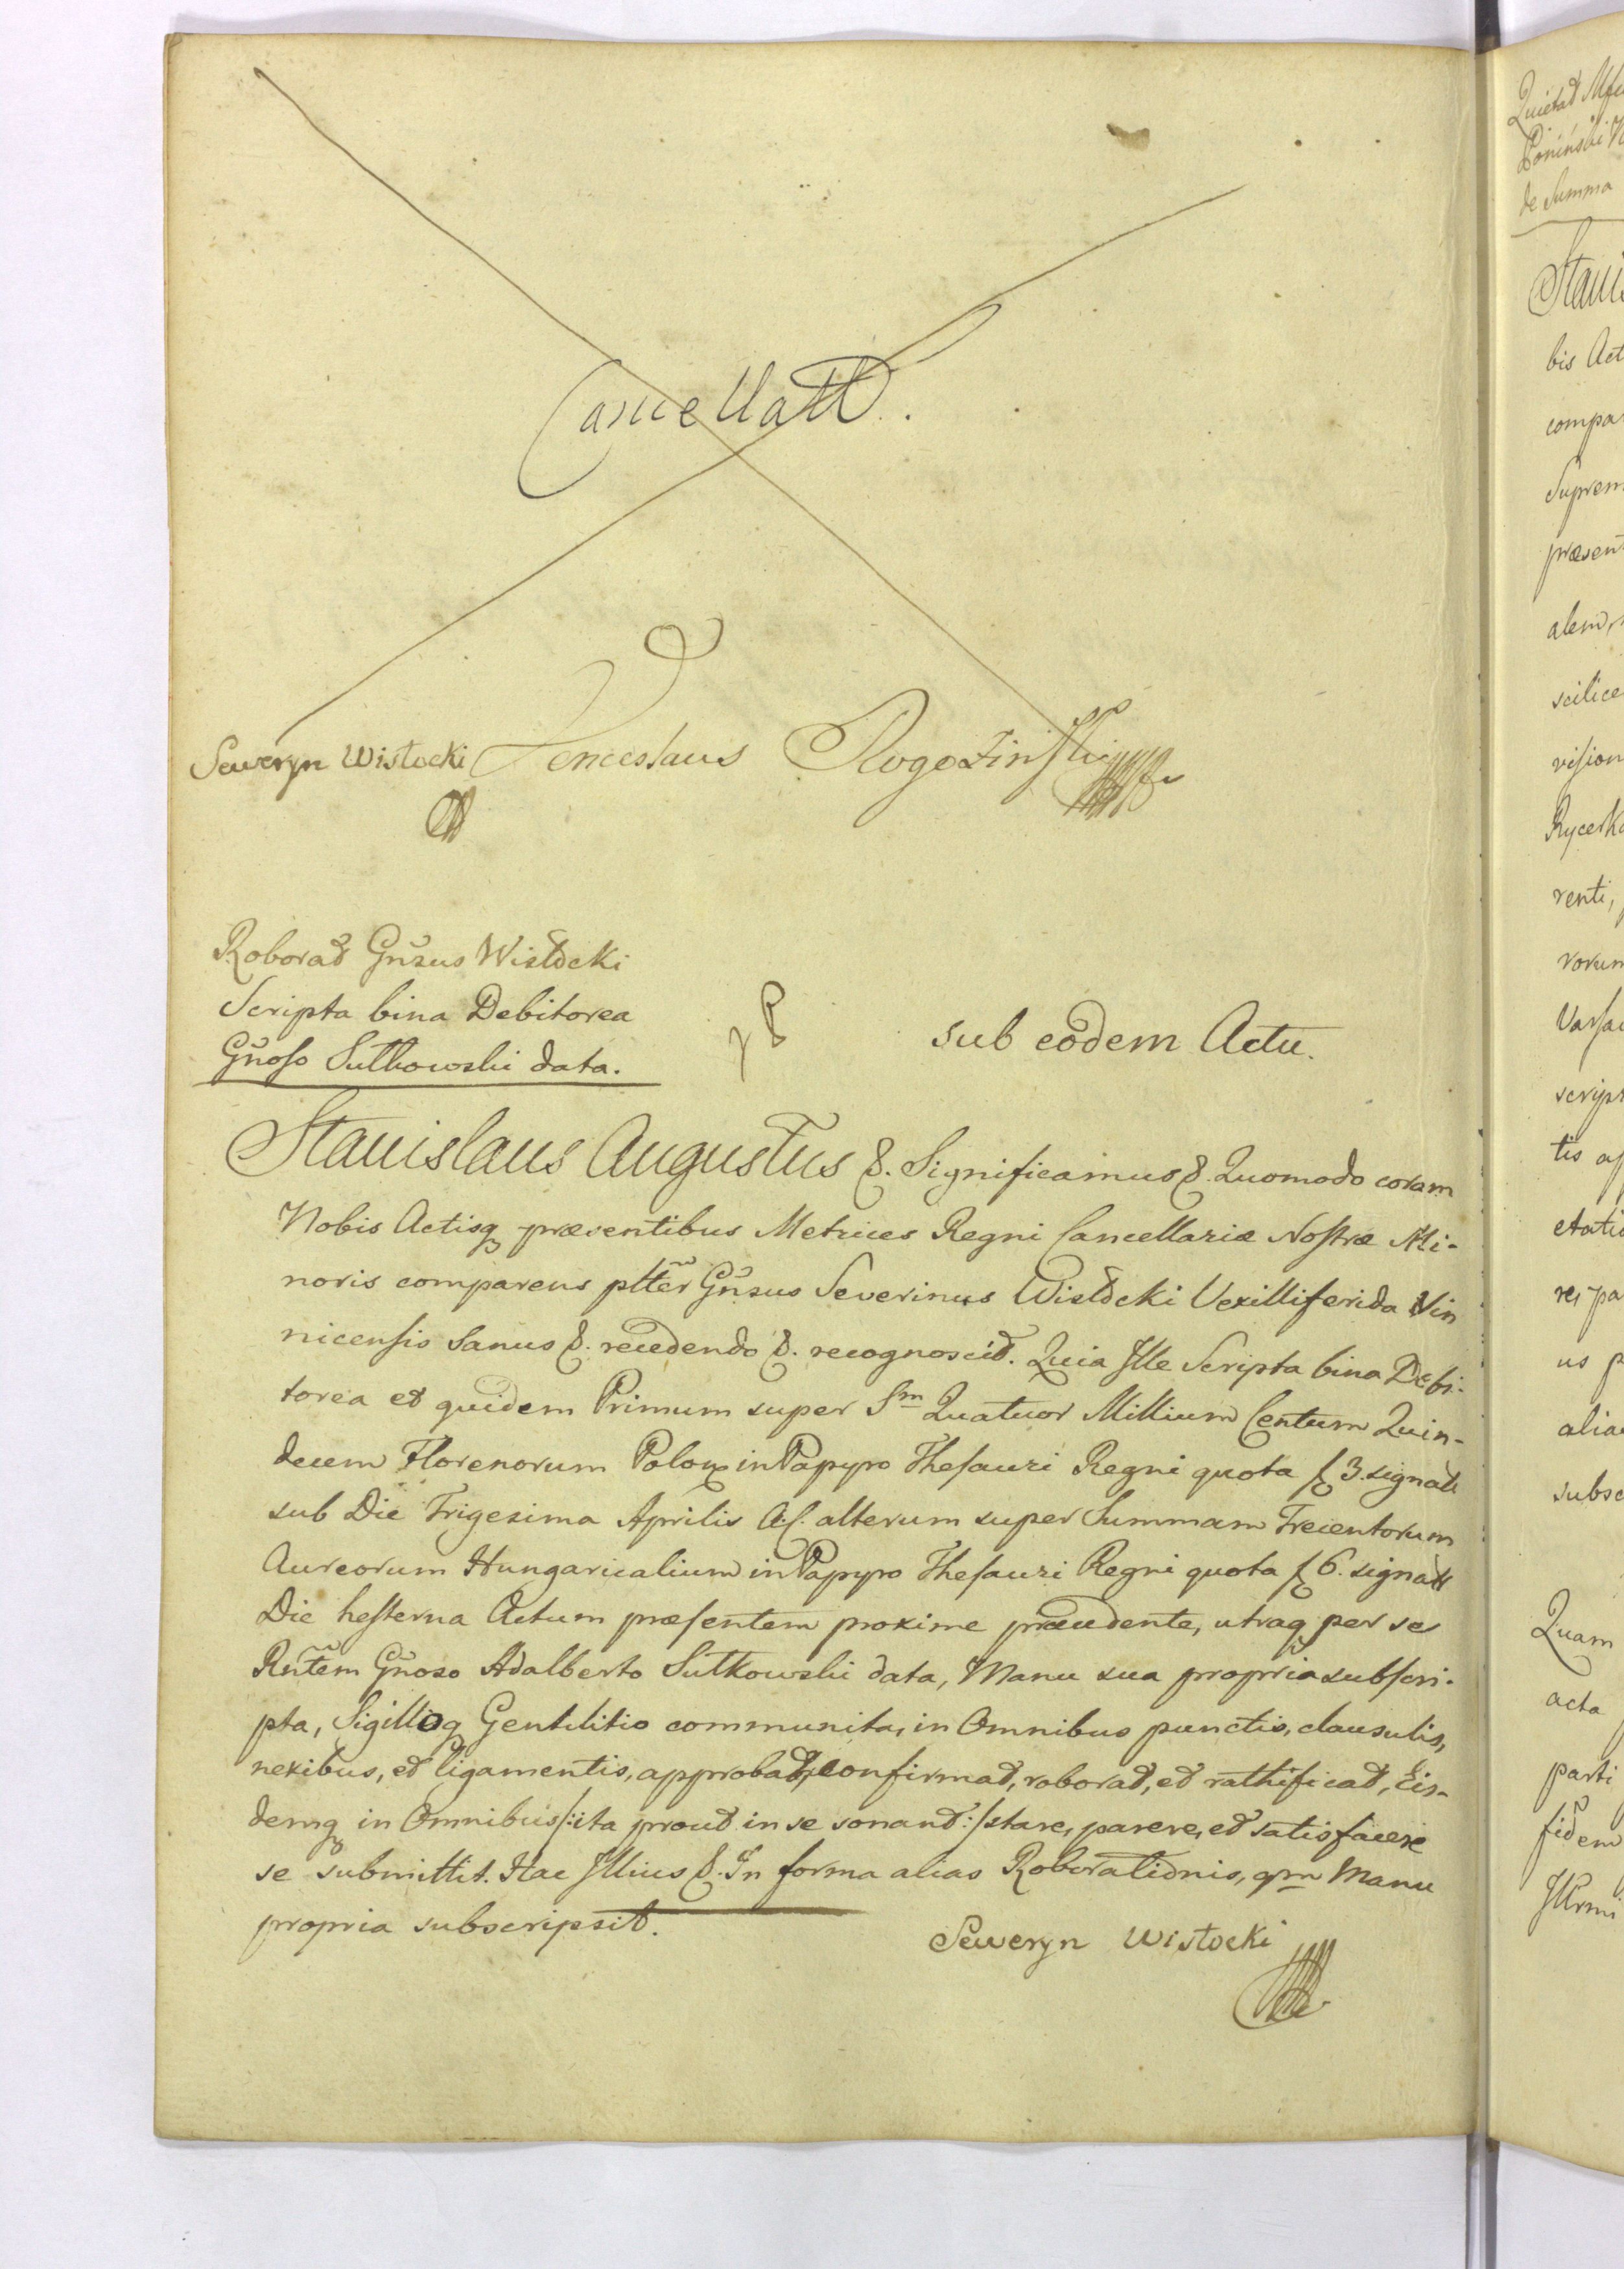 Cancellatt.
Seweryn Wisłocki Venceslaus Rogoziński
Roborat Gnsus Wisłocki
Scripta bina Debitorea
Gnoso Sułkowski data.
sub eodem Actu.
Stanislaus Augustus &. Significamus &. Quomodo coram
Nobis Actisq præsentibus Metrices Regni Cancellariæ Nostræ Mi-
noris comparens pltter Gnsus Severinus Wisłocki Vexilliferida Vin
nicensis Sanus &. recedendo &. recognoscit. Quia Ille Scripta bina Debi-
torea et quidem Primum super Sm Quatuor Millium Centum Quin-
decem Florenorum Polox in Papyro Thesauri Regni quota f 3. signatt
sub Die Trigesima Aprilis A.C. alterum super Summam Trecentorum
Aureorum Hungaricalium in Papyro Thesauri Regni quota f 6. signatt
Die hesterna Actum præsentem proxime præcedente, utraq per se
Rntem Gnoso Adalberto Sułkowski data, Manu sua propria subscri-
pta, Sigilloq Gentilitio communita, in Omnibus punctis, clausulis,
nexibus, et ligamentis, approbat, confirmat, roborat, et rathificat, Eis-
demq in Omnibus /: ita prout in se sonant :/ stare, parere, et satisfacere
se submittit. Hac Illius &. In forma alias Roborationis, qm Manu
propria subscripsit.
Seweryn Wisłocki
Quietat
Poniński
de Summa
bis Act
compa
Suprem
præsent
alem,
scilice
vision
renti,
rorum
Varsa
script
tis
us p
alia
subsc
Quam
acta
parti
fidem